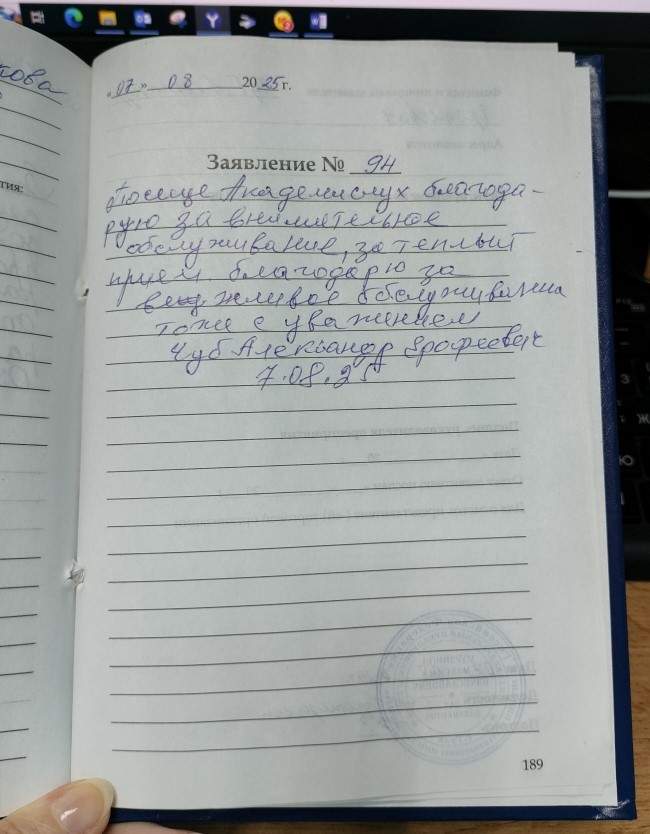 кова
тия:
«07» 08 2025 г.
Заявление № 94
Посеще Академислух благода-
рую за внимательное
обслуживание, за теплый
прием благодарю за
вежливое обслуживаниа
тоже с уважением
Чуб Александр Ерофеевич
7.08.25
189